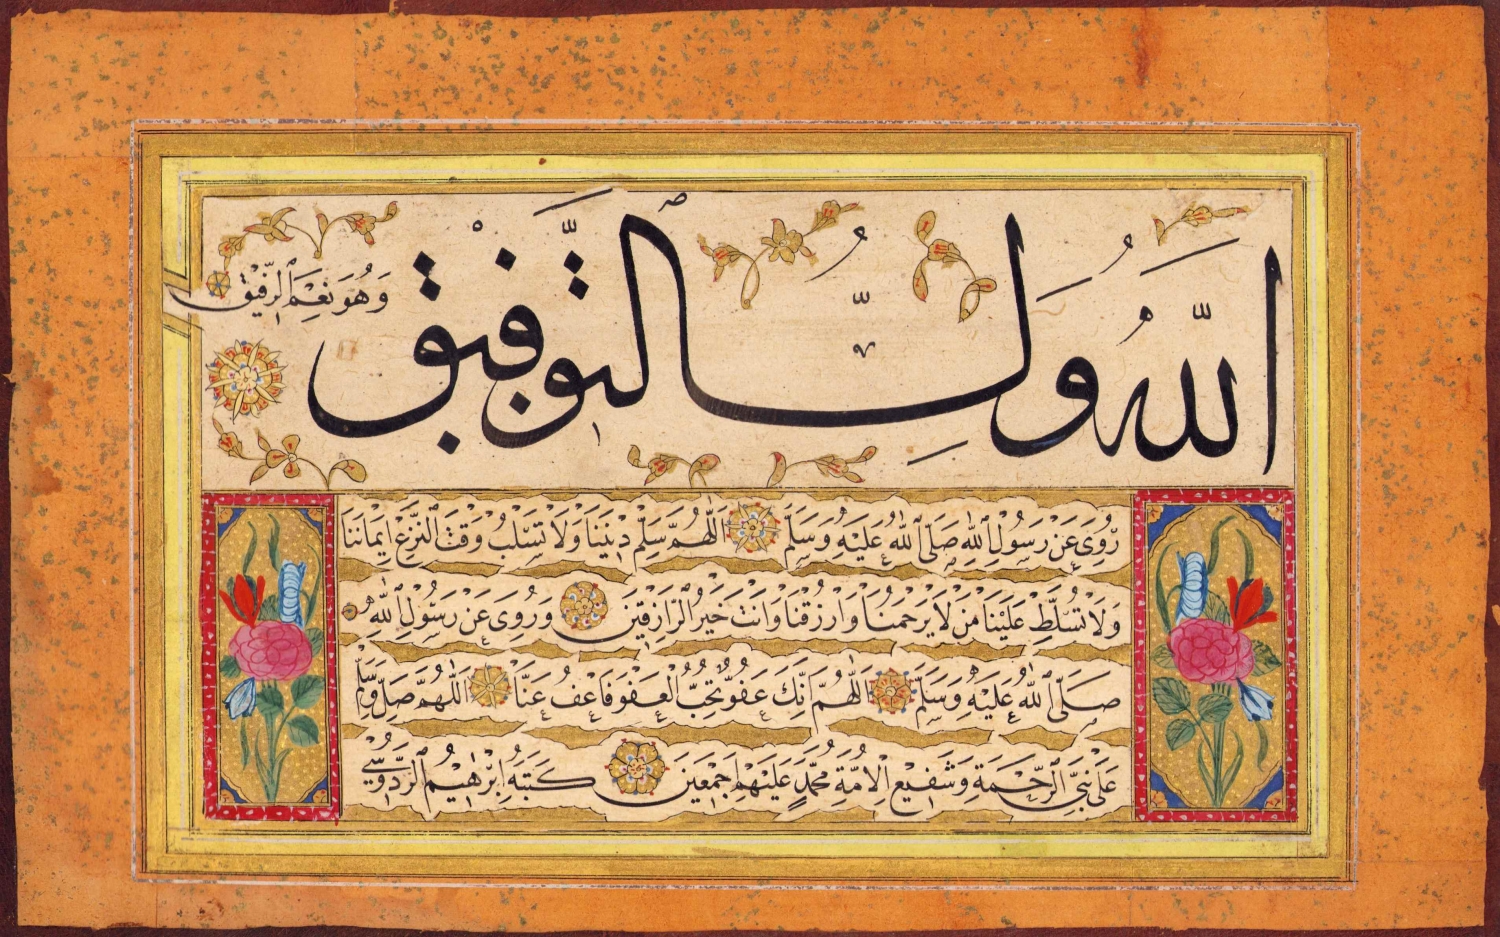 اَللّٰهُ وَلِيُّ التَّوْفِيقْ
وَهُوَ نِعْمَ الرَّفِيقْ
رُوِىَ عَنْ رَسُولِ اللّٰهِ صَلَّى اللّٰهُ عَلَيْهِ وَسَلَّمَ اَللّٰهُمَّ سَلِّمْ دِينَنَا وَلَا تَسْلُبْ وَقْتَ النَّزْعِ اِيمَانَنَا
وَلَا تُسَلِّطْ عَلَيْنَا مَنْ لَا يَرْحَمُنَا وَارْزُقْنَا وَاَنْتَ خَيْرُ الرَّازِقِينَ وَرُوِىَ عَنْ رَسُولِ اللّٰهِ
صَلَّى اللّٰهُ عَلَيْهِ وَسَلَّمَ اَللّٰهُمَّ اِنَّكَ عَفُوٌّ تُحِبُّ الْعَفْوَ فَاعْفُ عَنَّا اَللّٰهُمَّ صَلِّ وَسَلِّمْ
عَلَى نَبِيِّ الرَّحْمَةِ وَشَفِيعِ الْاُمَّةِ مُحَمَّدٍ عَلَيْهِمْ اَجْمَعِينَ كَتَبَهُ اِبْرٰهِيمُ الرُّدَوْسِي